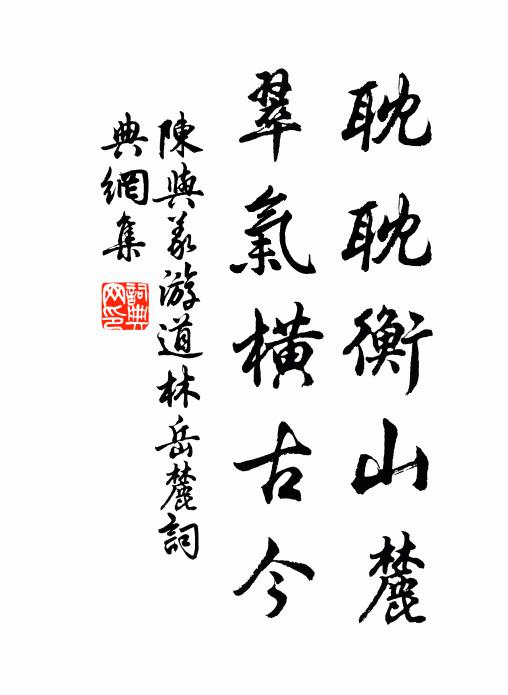 耽耽衡山麓
翠氣橫古今
陳與義游道林岳麓詞
典網集
詞典
网印